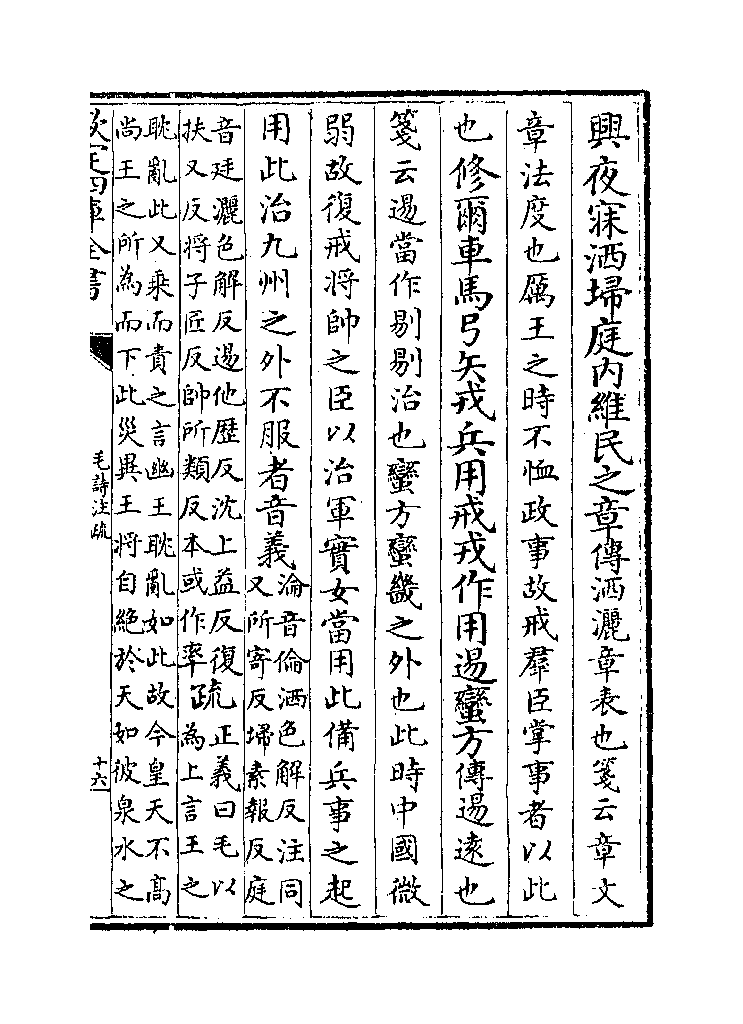 興夜寐洒埽庭内維民之章傳洒灑章表也箋云章文
章法度也厲王之時不恤政事故戒羣臣掌事者以此
也修爾車馬弓矢戎兵用戒戎作用逷蠻方傳逷遠也
箋云逷當作剔剔治也蠻方蠻畿之外也此時中國微
弱故復戒將帥之臣以治軍實女當用此備兵事之起
用此治九州之外不服者音義
淪音倫洒色解反注同
又所寄反埽素報反庭
音廷灑色解反逷他歷反沈上益反復
扶又反將子匠反帥所類反本或作率
疏
正義曰毛以
為上言王之
耽亂此又乘而責之言幽王耽亂如此故今皇天不高
尚王之所為而下此災異王將自絶於天如彼泉水之
欽定四庫全書
毛詩注疏
十六